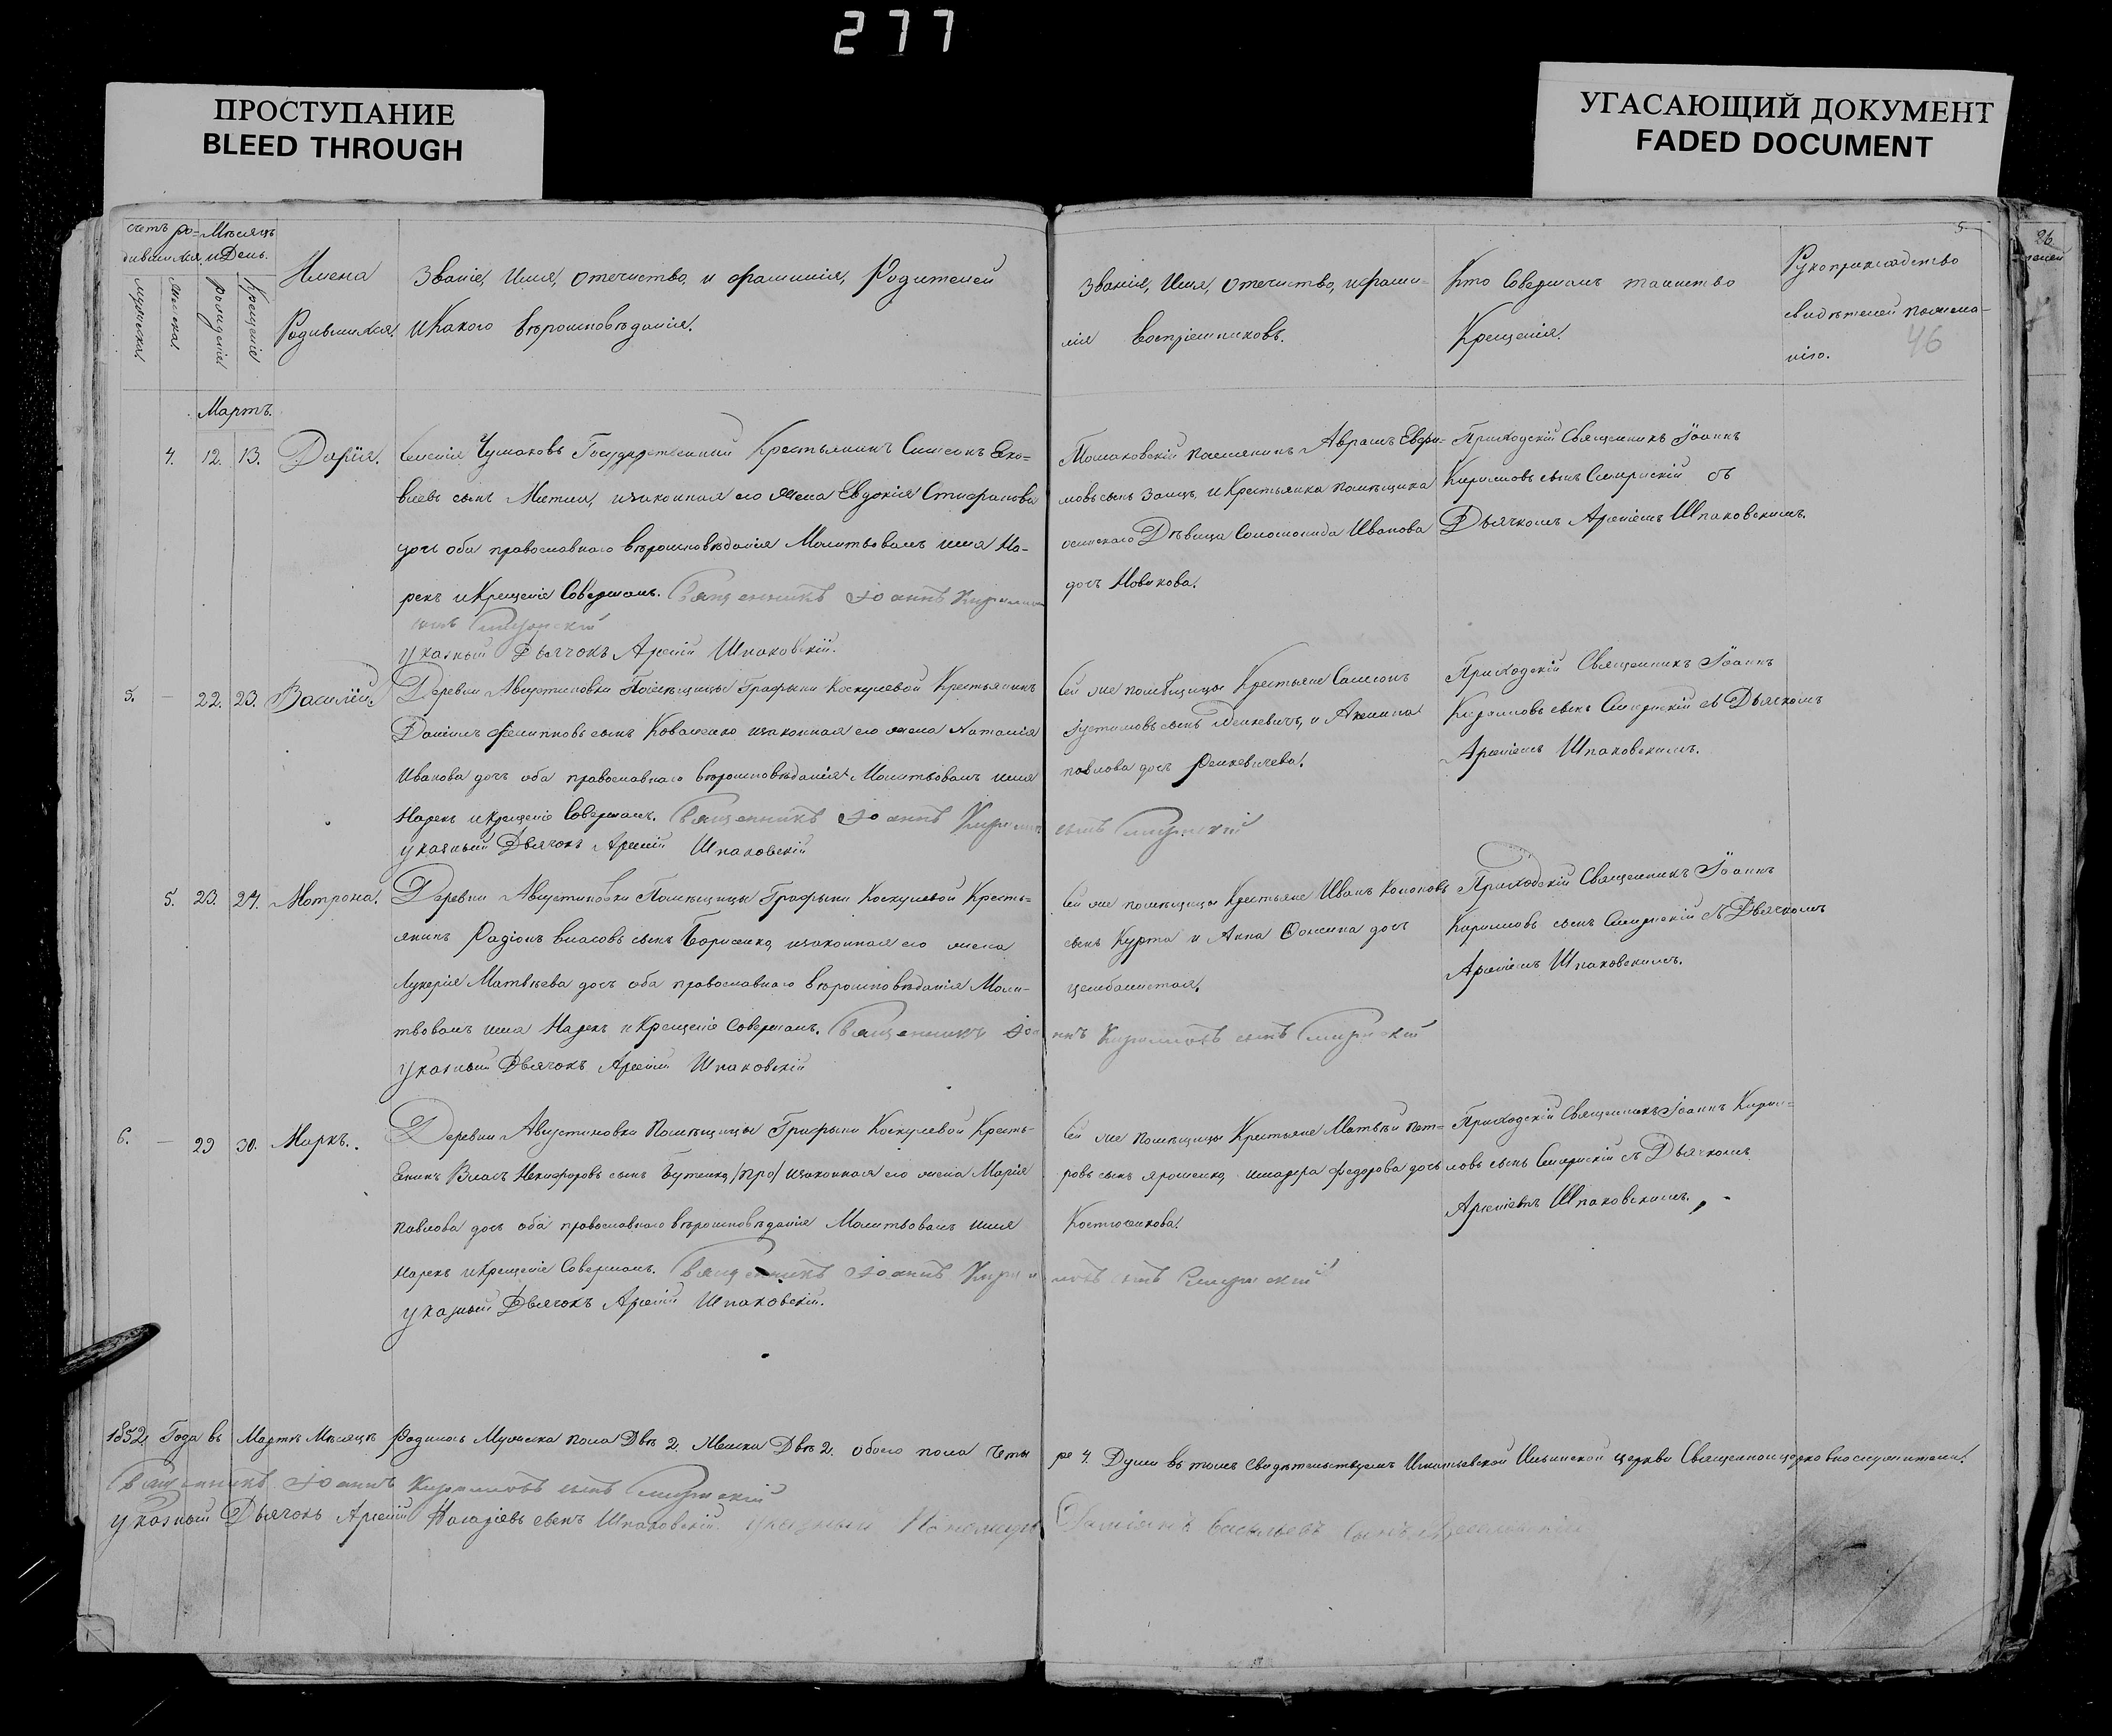 277
ПРОСТУПАНИЕ
BLEED THROUGH
УГАСАЮЩИЙ ДОКУМЕНТ
FADED DOCUMENT
5
26
46
счетъ ро-
дившихся
Мѣсяцъ
и День.
мужска
женска
рожденія
Крещенія
Имена
Родившихся.
Званіе, Имя, отечиство, и фамилія, Родителей
и Какого вѣроисповѣданія.
Званія, Имя, отечиство, и фами-
лія воспріемниковъ.
Кто Совершалъ таинство
Крещенія.
Рукоприкладство
свидѣтелей по жела-
нію.
Мартъ.
4. 12. 13. Дарія.
Чумаковъ Государственный Крестьянинъ Симеонъ Яко-
влевъ сынъ изаконная его жена Евдокія Стефанова
дочь оба православнаго вѣроисповѣданія Молитвовалъ имя На-
рекъ и Крещеніе Совершалъ. Священникъ Іоаннъ Кирилловъ
сынъ
указный Дьячокъ Арсеній Шпаковскій.
Аврамъ Ефи-
мовъ сынъ Заицъ и Крестьянка помѣщика
Дѣвица Соломонида Иванова
дочь Новикова.
Приходскій Священникъ Іоаннъ
Кирилловъ сынъ съ
Дьячкомъ Арсеніемъ Шпаковскимъ.
5. — 22. 23. Василій.
Деревни Августиновки Помѣщицы Графыни Коскулевой Крестьянинъ
Даніилъ Филиповъ сынъ Коваленко изаконная его жена Наталія
Иванова дочь оба православнаго вѣроисповѣданія Молитвовалъ имя
Нарекъ и Крещеніе Совершалъ. Священникъ Іоаннъ Кирилловъ сынъ
указный Дьячокъ Арсеній Шпаковскій
Сей же помѣщицы Крестьяне Самсонъ
Іустимовъ сынъ и Акилина
павлова дочь
Приходскій Священникъ Іоаннъ
Кирилловъ сынъ съ Дьячкомъ
Арсеніемъ Шпаковскимъ.
5. 23. 24. Мотрона.
Деревни Августиновки Помѣщицы Графыни Коскулевой Кресть-
янинъ Радіонъ власовъ сынъ Борисенко, изаконная его жена
Лукерія Матвѣева дочь оба православнаго вѣроисповѣданія Моли-
твовалъ имя Нарекъ и Крещеніе Совершалъ. Священникъ Іоаннъ Кирилловъ сынъ
указный Дьячокъ Арсеній Шпаковскій
Сей же помѣщицы Крестьяне Иванъ Кононовъ
сынъ Курта и Анна Фомина дочь
Цембалистая.
Приходскій Священникъ Іоаннъ
Кирилловъ сынъ съ Дьячкомъ
Арсеніемъ Шпаковскимъ.
6. — 29 30. Маркъ.
Деревни Августиновки Помѣщицы Графыни Коскулевой Кресть-
Енинъ Власъ Никифоровъ сынъ Бутенко, /про/ изаконная его жена Марія
павлова дочь оба православнаго вѣроисповѣданія Молитвовалъ имя
нарекъ и Крещеніе Совершалъ. Священникъ Іоаннъ Кирилловъ сынъ
указный Дьячокъ Арсеній Шпаковскій.
Сей же помѣщицы Крестьяне Матвѣй пет-
ровъ сынъ ярошенко, федорова дочь
Костюченкова.
Приходскій Священникъ Іоаннъ Кири-
ловъ сынъ съ Дьячкомъ
Арсеніемъ Шпаковскимъ.
1852 Года въ Мартѣ Мѣсяцѣ Родилось Мужска пола Двѣ 2. Женска Двѣ 2. обоего пола Четы
ре 4. Души въ томъ Свидѣтельствуемъ Ильинской церкви Священноцерковнослужители.
Священникъ Іоаннъ Кирилловъ сынъ
указный Дьячокъ Арсеній сынъ Шпаковскій. указный Пономарь Даміанъ Васильевъ Сынъ